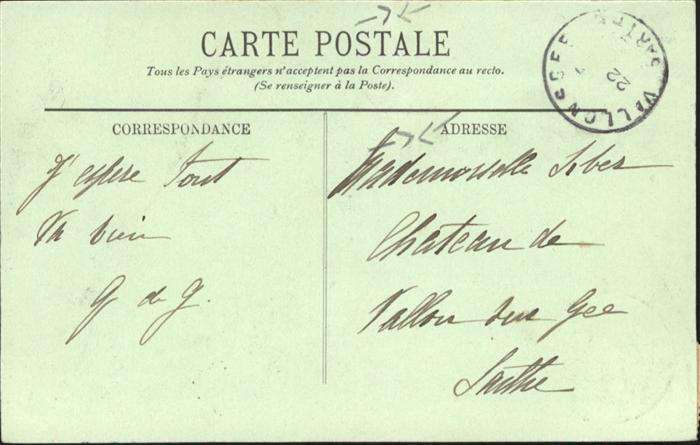 CARTE POSTALE
Tous les Pays étrangers n'acceptent pas la Correspondance au recto.
(Se renseigner à la Poste).
CORRESPONDANCE
J'espère tout
va bien
G de G.
ADRESSE
Mademoiselle
Château de
Vallon sur Gée
Sarthe
VALLON S GEE
SARTHE
22